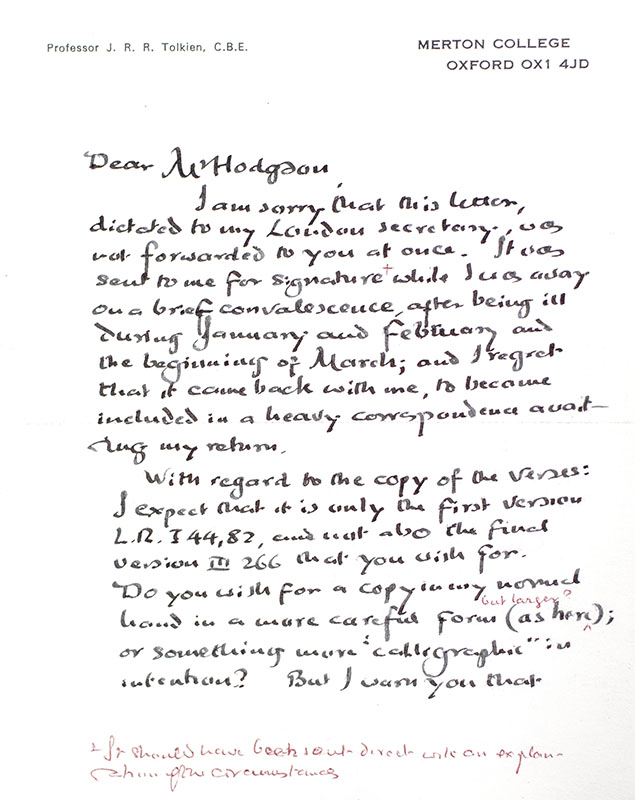 Professor J. R. R. Tolkien, C.B.E.
MERTON COLLEGE
OXFORD OX1 4JD
Dear Mr Hodgson,
I am sorry that this letter,
dictated to my London secretary, was
not forwarded to you at once. It was
sent to me for signature + while I was away
on a brief convalescence, after being ill
during January and February and
the beginning of March; and I regret
that it came back with me, to become
included in a heavy correspondence await-
ing my return.
With regard to the copy of the verses:
I expect that it is only the first version
L.R. I 44, 82, and not also the final
version III 266 that you wish for.
Do you wish for a copy in my normal
but larger?
hand in a more careful form (as here);
or something more "calligraphic" in
intention? But I warn you that
+ It should have been sent direct with an explan-
ation of the circumstances